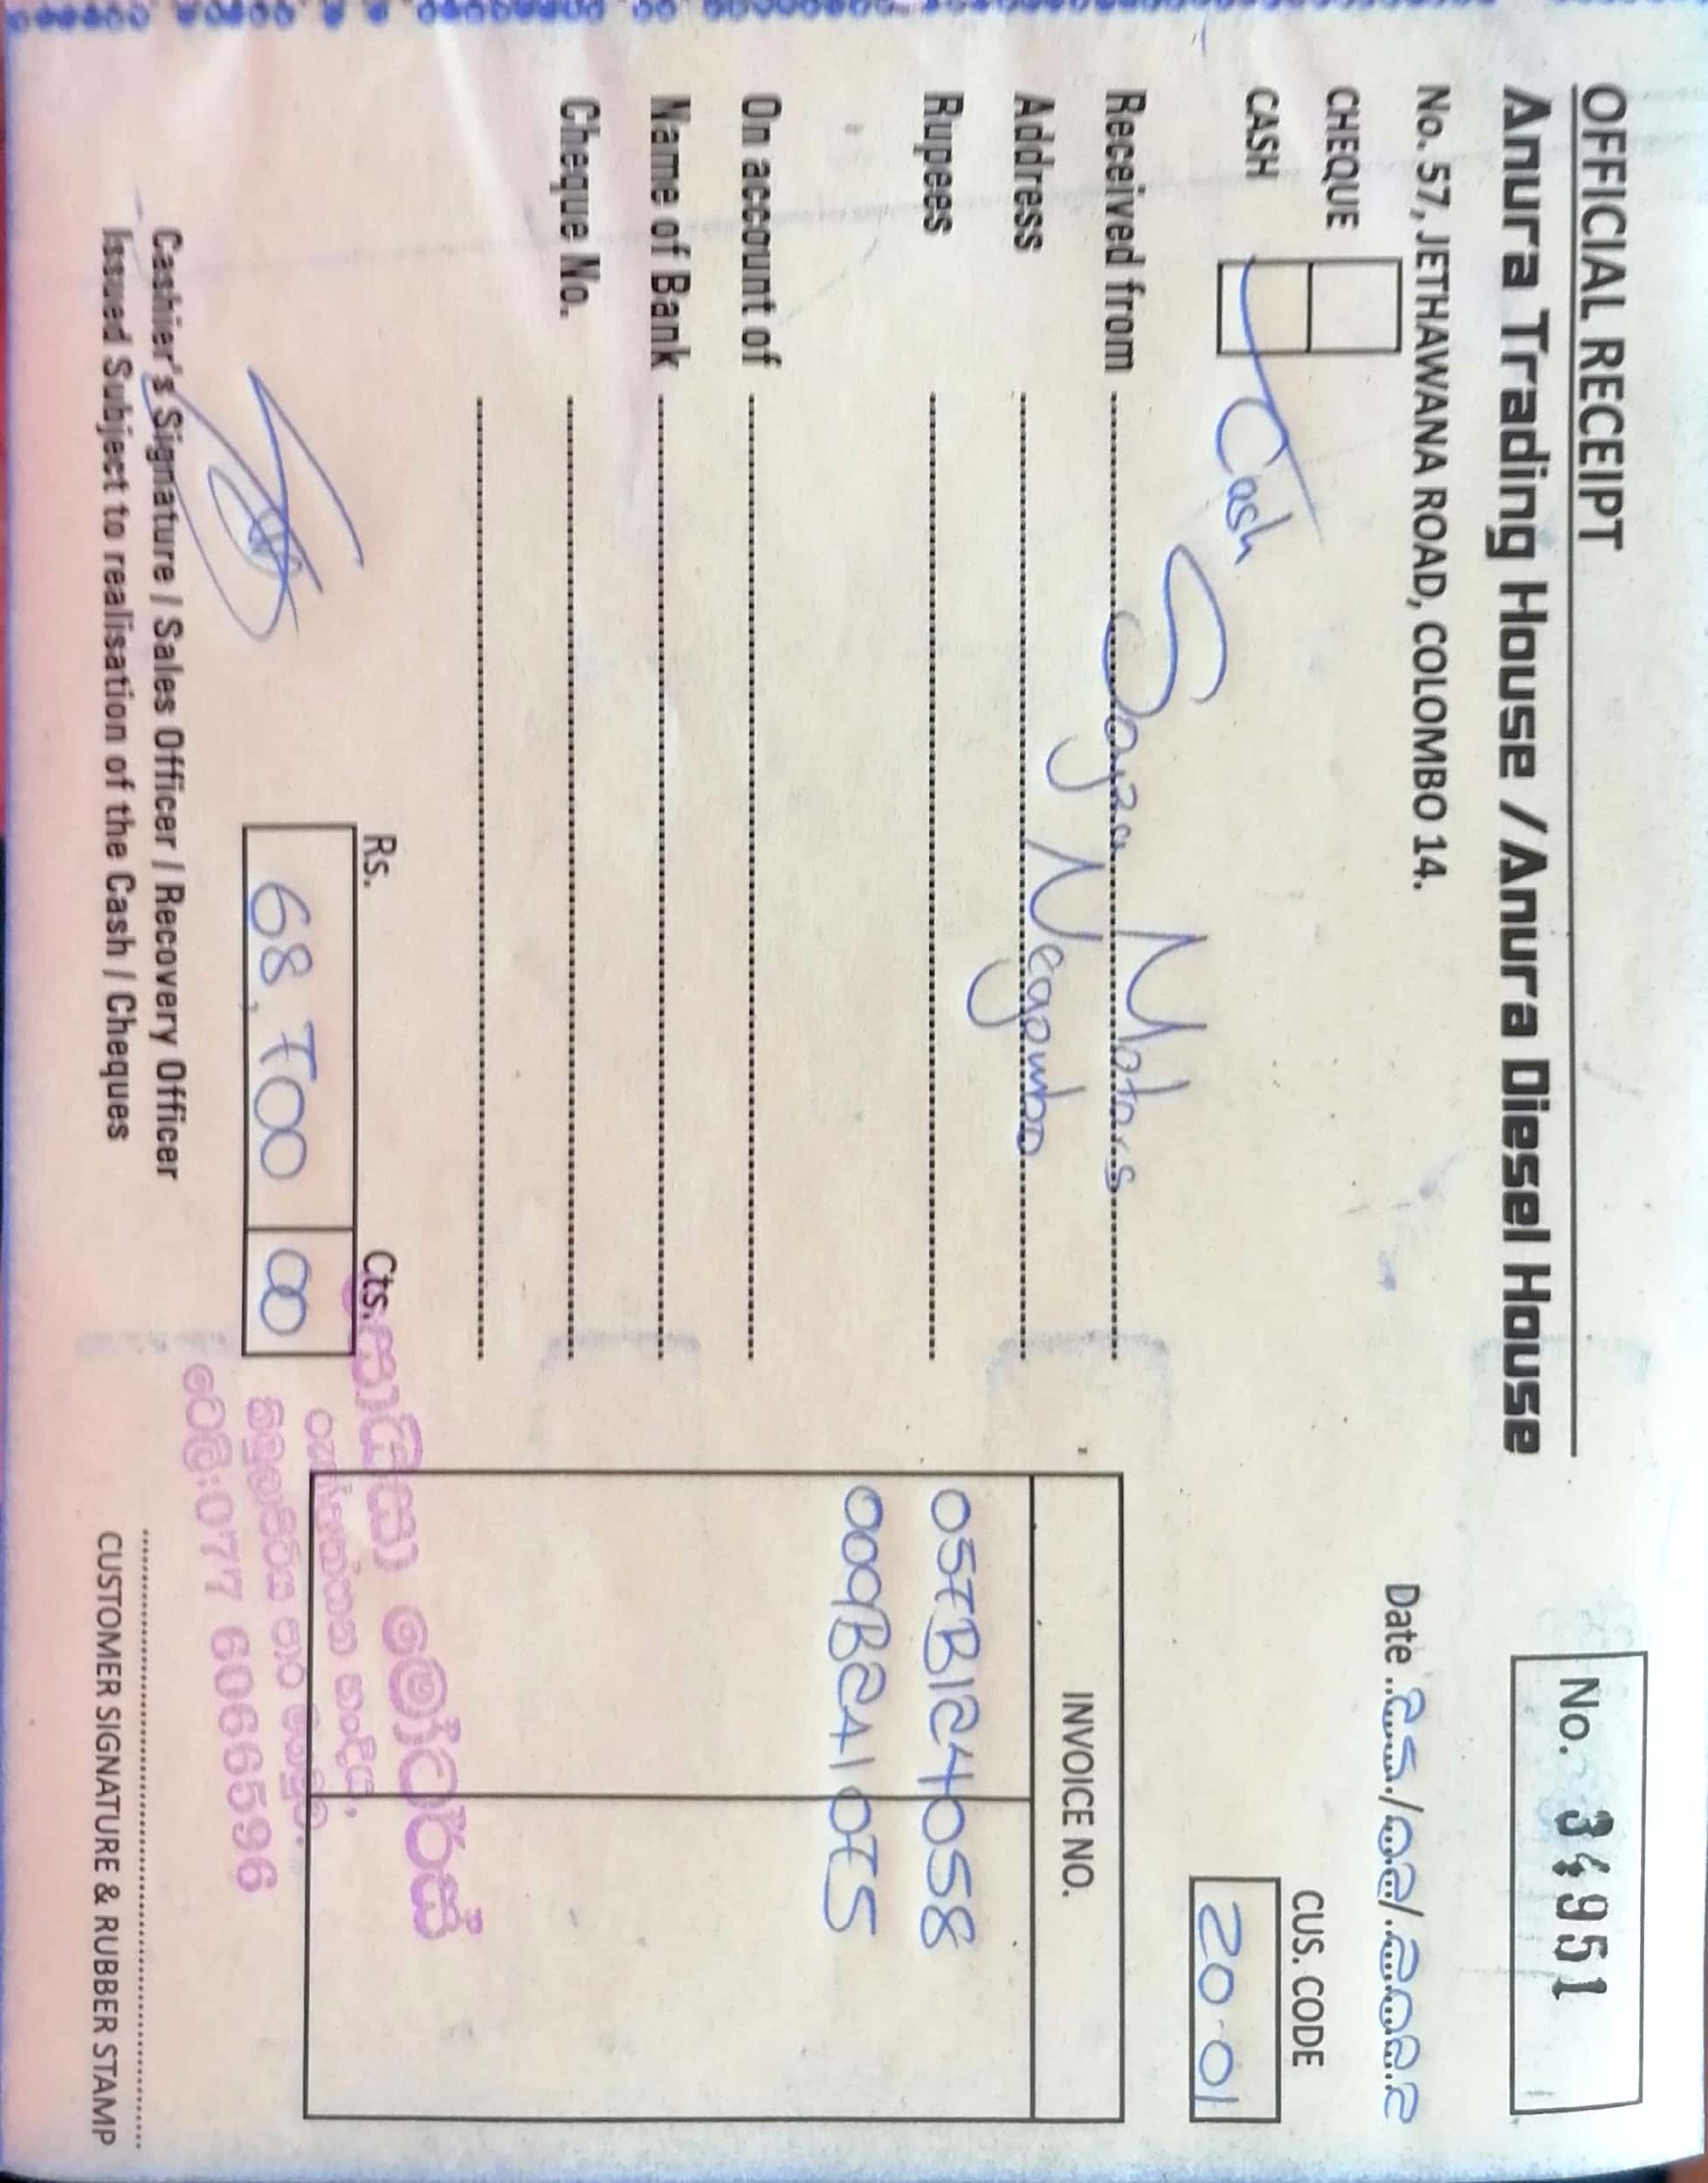 OFFICIAL RECEIPT
No. 34951
Anura Trading House / Anura Diesel House
No. 57, JETHAWANA ROAD, COLOMBO 14.
Date 25/02/2022
CHEQUE
CASH Cash
CUS. CODE
20-01
Received from Motors
Address Negombo
Rupees
On account of
Name of Bank
Cheque No.
INVOICE NO.
057B124058
009B2A1075
Rs. Cts.
68,700 00
මෝටර්ස්
හන්දිය,
පාර
ටෙලි:077 6066596
Cashier's Signature / Sales Officer / Recovery Officer
Issued Subject to realisation of the Cash / Cheques
CUSTOMER SIGNATURE & RUBBER STAMP